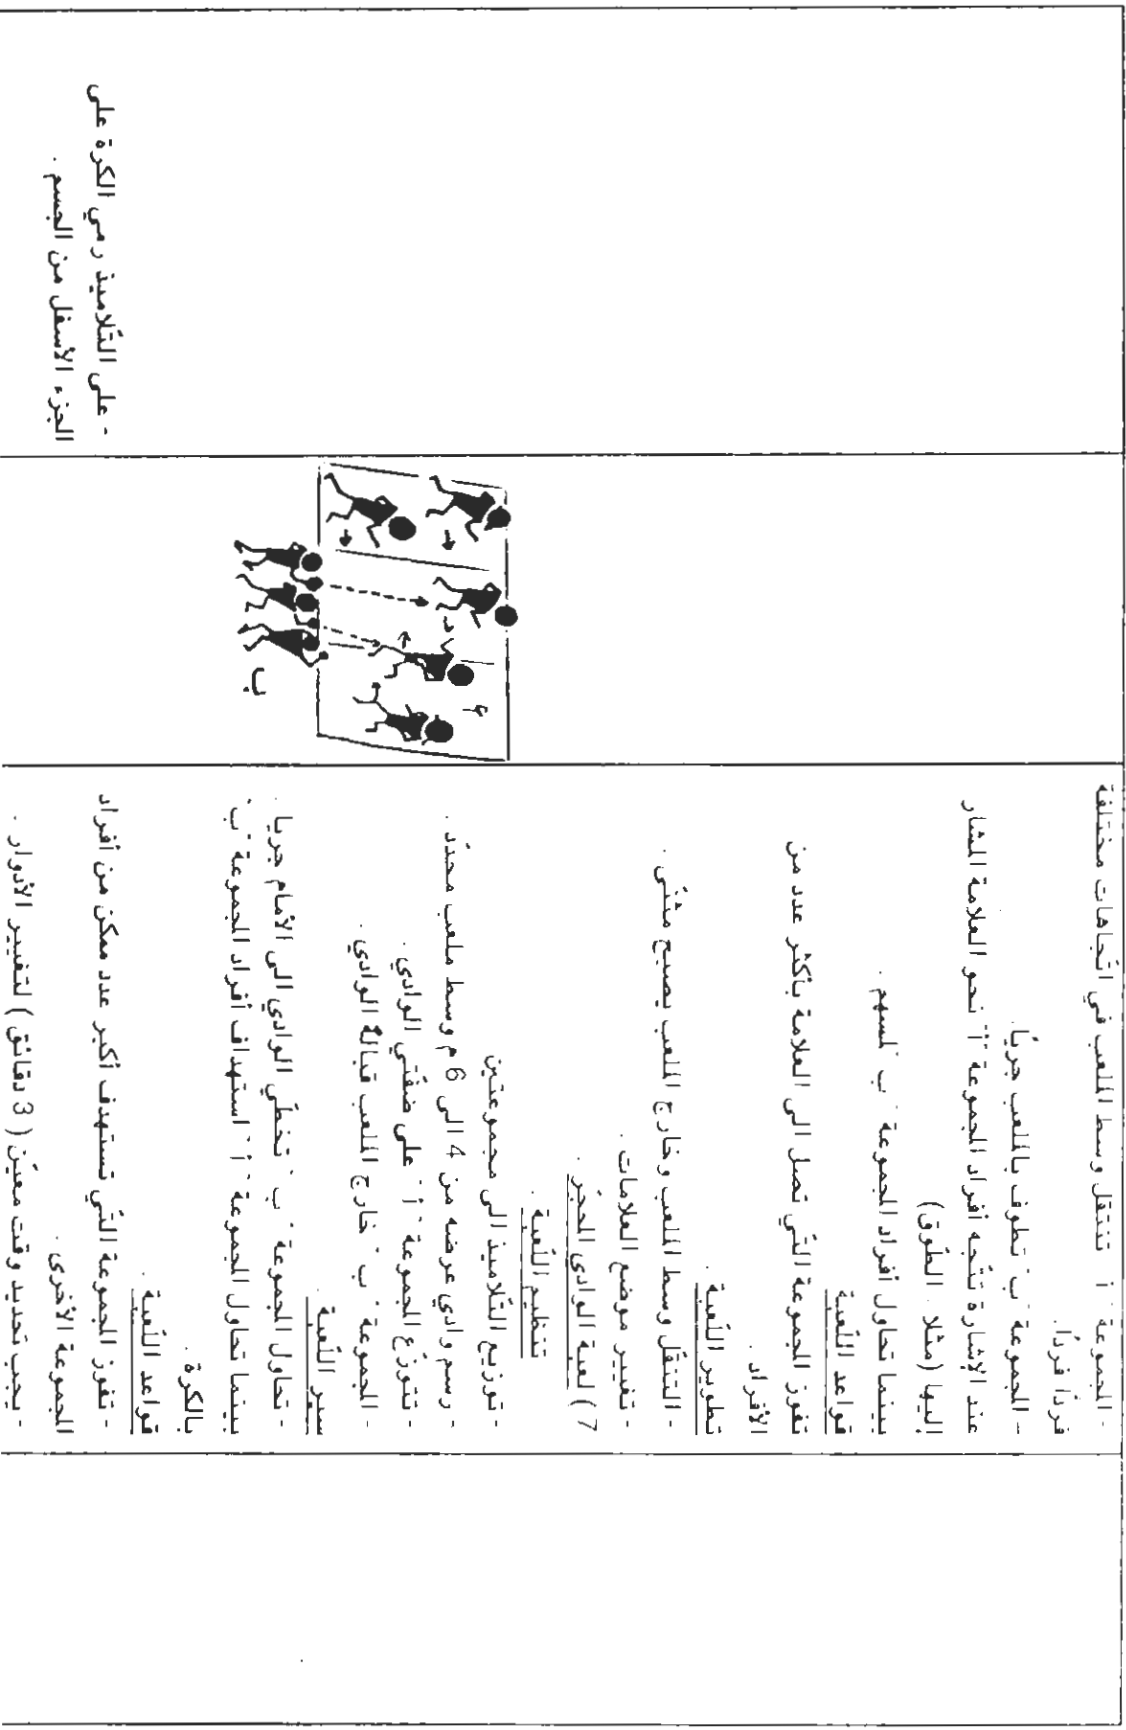 - المجموعة " أ " تنتقل وسط الملعب في اتّجاهات مختلفة
فردًا فردًا.
- المجموعة "ب" تطوف بالملعب جريًا.
عند الإشارة تتّجه أفراد المجموعة "أ" نحو العلامة المشار
إليها (مثلا الطّوق)
بينما تحاول أفراد المجموعة " ب " لمسهم .
قواعد اللّعبة
تفوز المجموعة التّي تصل الى العلامة بأكثر عدد من
الأفراد .
تطوير اللّعبة .
- التنقّل وسط الملعب وخارج الملعب يصبح مثنّى .
- تغيير موضع العلامات .
7 ) لعبة الوادي المحجّر .
تنظيم اللّعبة .
- توزيع التّلاميذ الى مجموعتين
- رسم وادي عرضه من 4 الى 6 م وسط ملعب محدّد .
- تتوزّع المجموعة " أ " على ضفّتي الوادي .
- المجموعة " ب " خارج الملعب قبالة الوادي .
سير اللّعبة .
- تحاول المجموعة " ب " تخطّي الوادي الى الأمام جريا .
بينما تحاول المجموعة " أ " استهداف أفراد المجموعة "ب"
بالكرة .
قواعد اللّعبة .
- تفوز المجموعة التّي تستهدف أكبر عدد ممكن من أفراد
المجموعة الأخرى .
- يجب تحديد وقت معيّن ( 3 دقائق ) لتغيير الأدوار .
ب
- على التّلاميذ رمي الكرة على
الجزء الأسفل من الجسم .